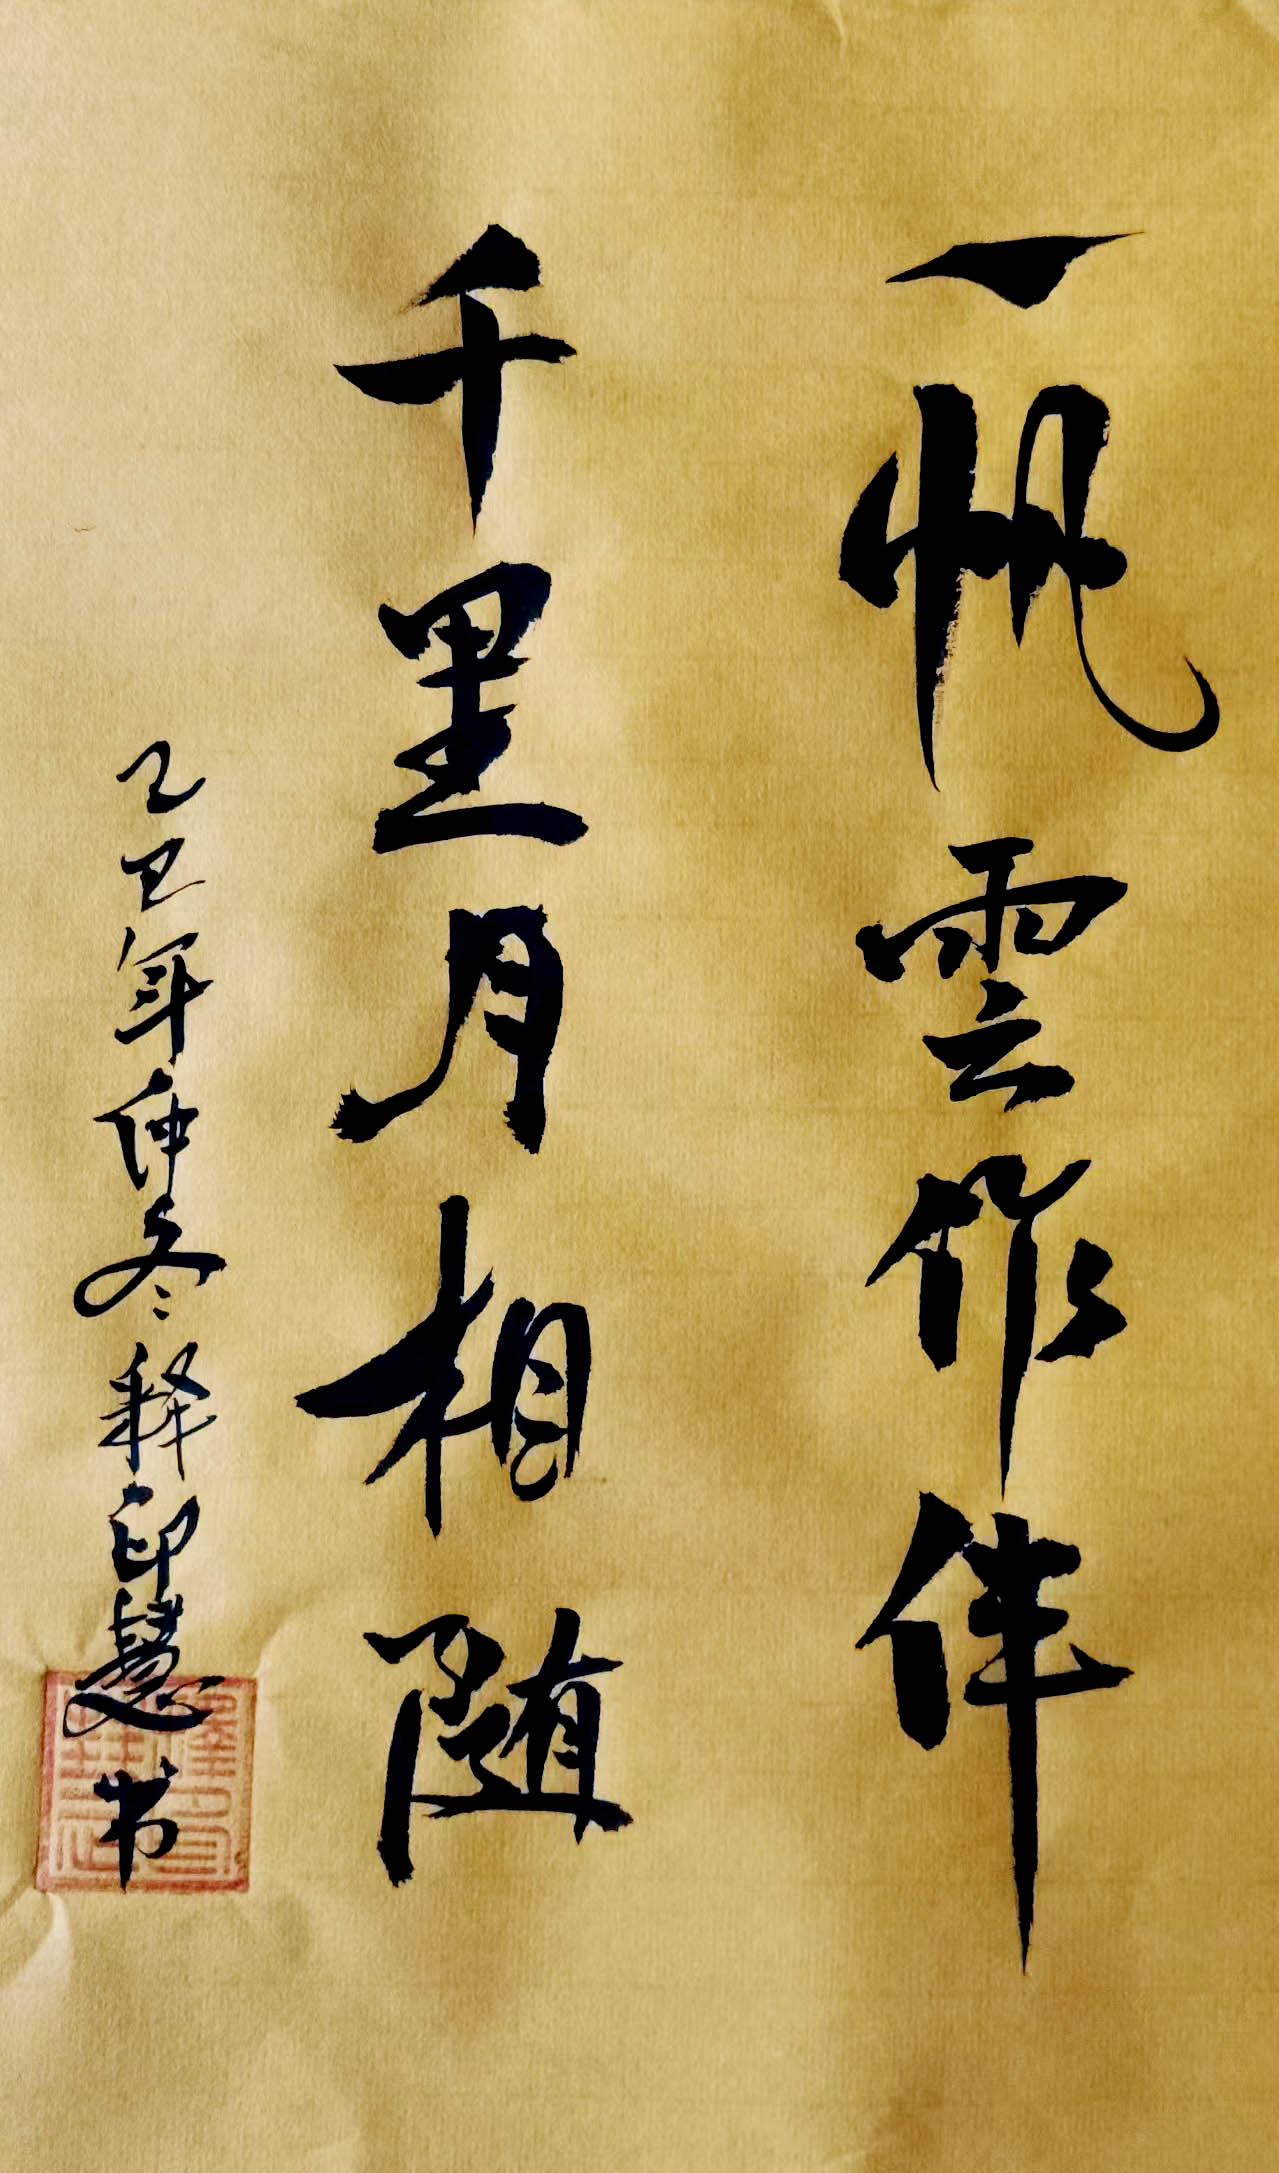 一帆雲作伴
千里月相随
乙巳年仲冬释印慧书